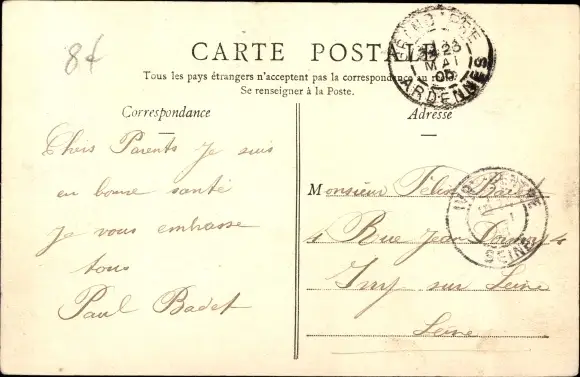 8 ¢
CARTE POSTALE
Tous les pays étrangers n'acceptent pas la correspondance au
Se renseigner à la Poste.
Correspondance
Adresse
Chers Parents Je suis
en bonne santé
Je vous embrasse
tous
Paul Badet
Monsieur Félix Badet
4 Rue Jean
Ivry sur Seine
Seine
23
MAI
05
ARDENNES
SEINE